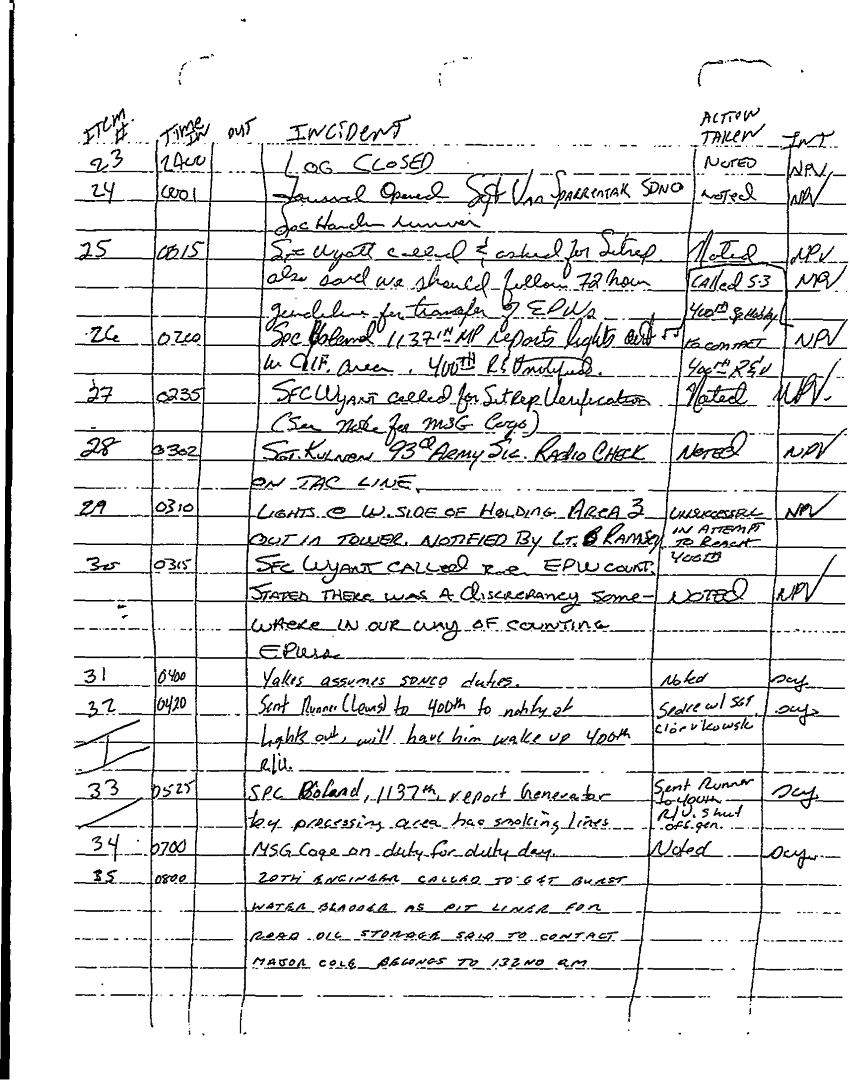 ITEM # TIME IN OUT INCIDENT ACTION TAKEN INT
23 2400 LOG CLOSED NOTED NPV
24 0001 Journal Opened Sgt Van Sparrentak SDNCO Noted NPV
Spc runner
25 0015 Sfc Wyatt called & asked for Sitrep. Noted NPV
also said we should follow 72 hour Called S-3 NPV
guideline for transfer of EPWs 400th
26 0200 Spc Boland 1137th MP reports lights out to contact NPV
in C.I.F. area. 400TH R&U notified. 400th R&U
27 0235 SFC Wyant called for Sitrep Verification Noted NPV.
(See Note for MSG)
28 0302 SGT. 93rd ARMY SIG. RADIO CHECK NOTED NPV
ON TAC LINE.
29 0310 LIGHTS @ W. SIDE OF HOLDING AREA 3 UNSUCCESSFUL NPV
OUT IN TOWER. NOTIFIED BY LT. RAMSEY IN ATTEMPT TO REACH
30 0315 SFC WYANT CALLED R.E. EPW COUNT. 400th
STATED THERE WAS A DISCREPANCY SOME- NOTED NPV
WHERE IN OUR WAY OF COUNTING
EPWs.
31 0400 Yakes assumes SDNCO duties. Noted
32 0420 Sent Runner (Lewis) to 400th to notify of w/ SGT
lights out, will have him wake up 400th
R/U.
33 0525 SPC Boland, 1137th, report Generator Sent Runner to 400th
by processing area has smoking lines R/U. Shut off gen.
34 0700 MSG Cage on duty for duty day. Noted
35 0800 20TH ENGINEER CALLED TO GET BURST
WATER BLADDER AS PIT LINER FOR
ROAD OIL STORAGE SAID TO CONTACT
MAJOR COLE BELONGS TO 132ND QM